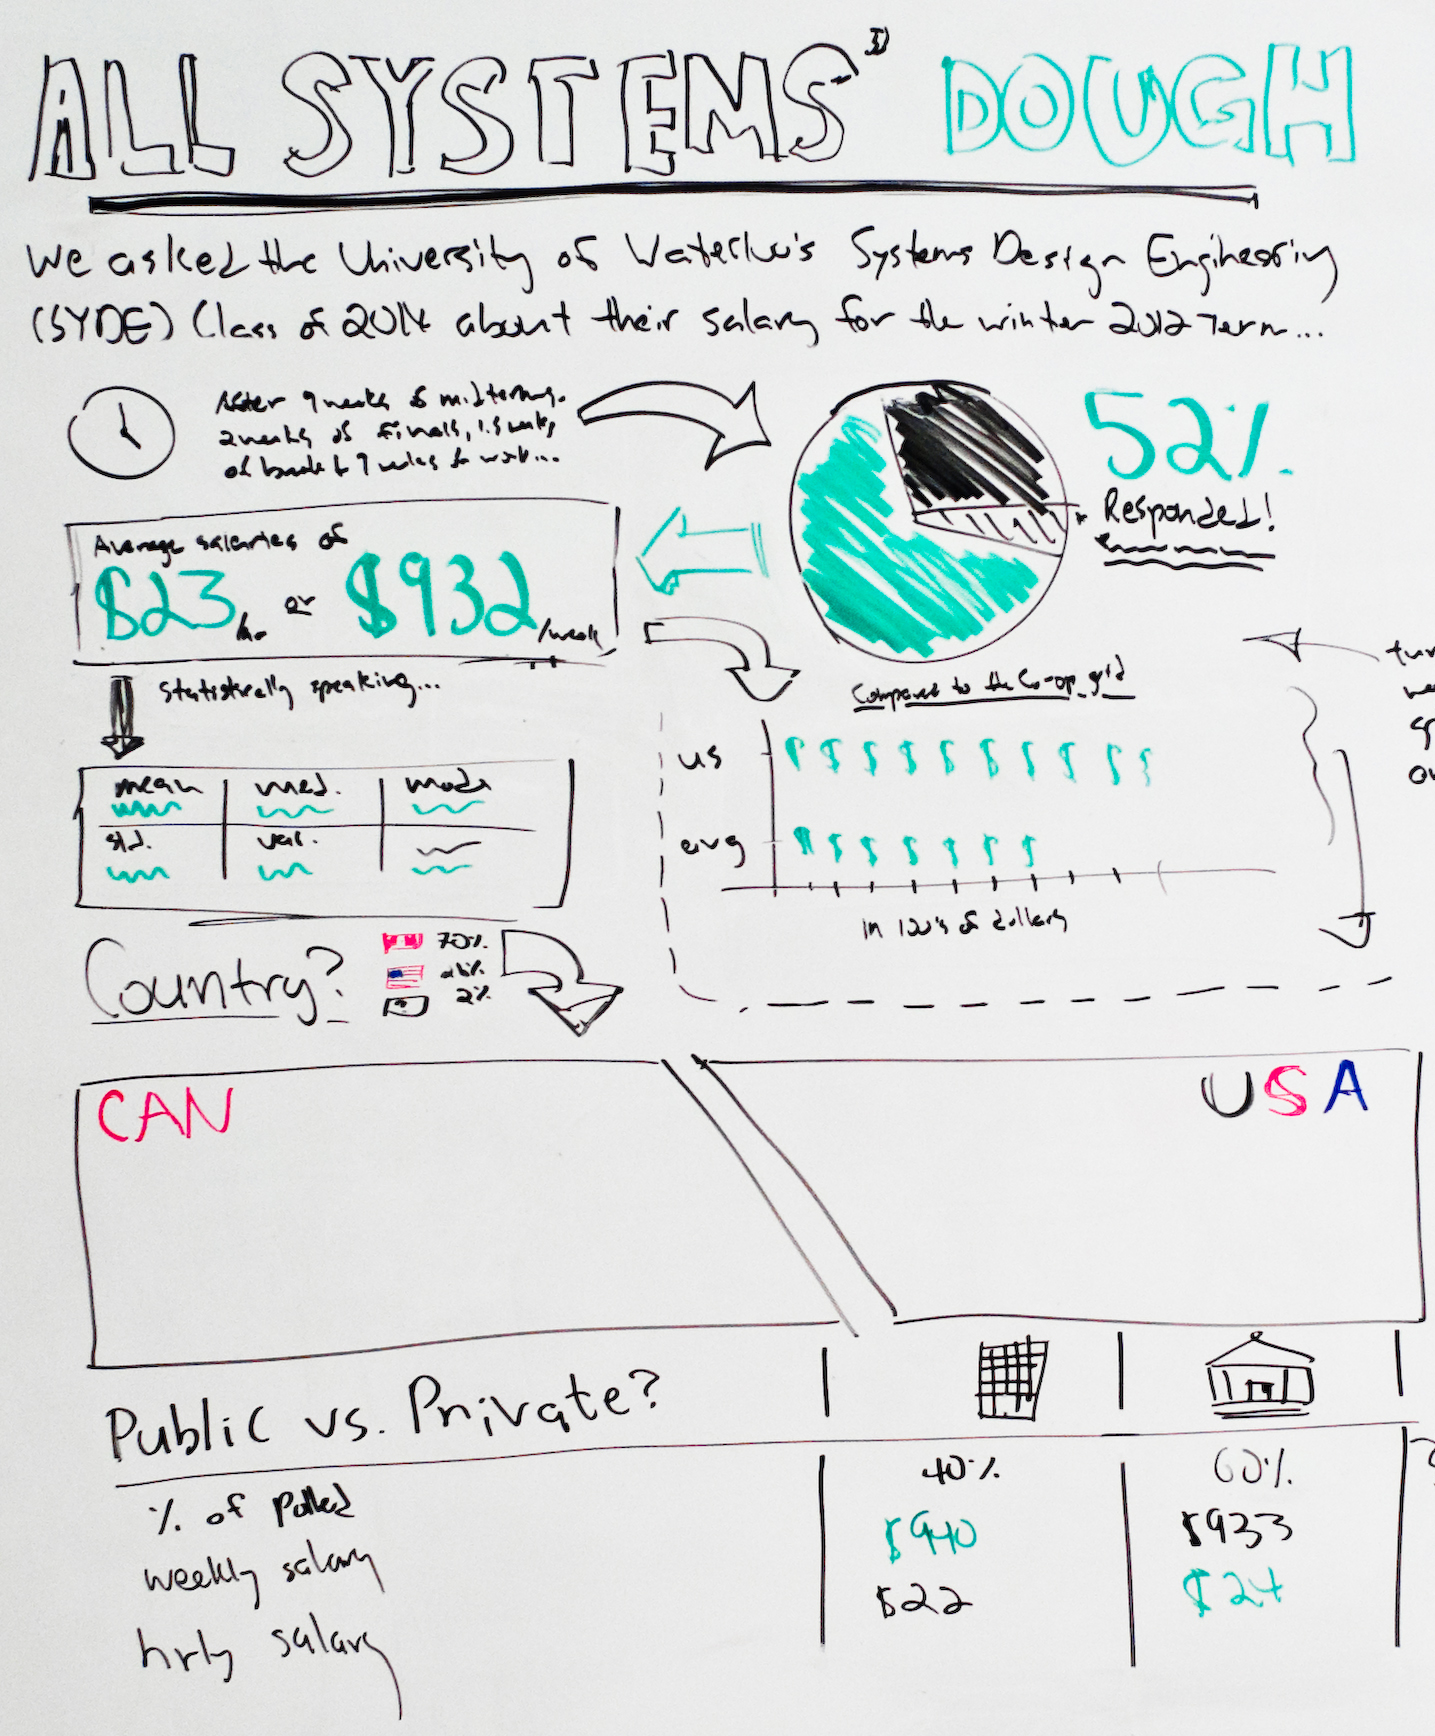 ALL SYSTEMS DOUGH
We asked the University of Waterloo's Systems Design Engineering
(SYDE) Class of 2014 about their salary for the winter 2012 term...
After 9 weeks of midterms,
2 weeks of finals, 1.5 weeks
of break & 9 weeks of work...
52%
Responded!
Average salaries of
$23/hr or $932/week
Statistically speaking...
mean med. mode
std. var.
Compared to the Co-op grid
us $ $ $ $ $ $ $ $ $ $
avg $ $ $ $ $ $ $
in 100's of dollars
Country?
70%
2%
CAN
USA
Public vs. Private?
% of polled 40% 60%
weekly salary $940 $933
hrly salary $22 $24